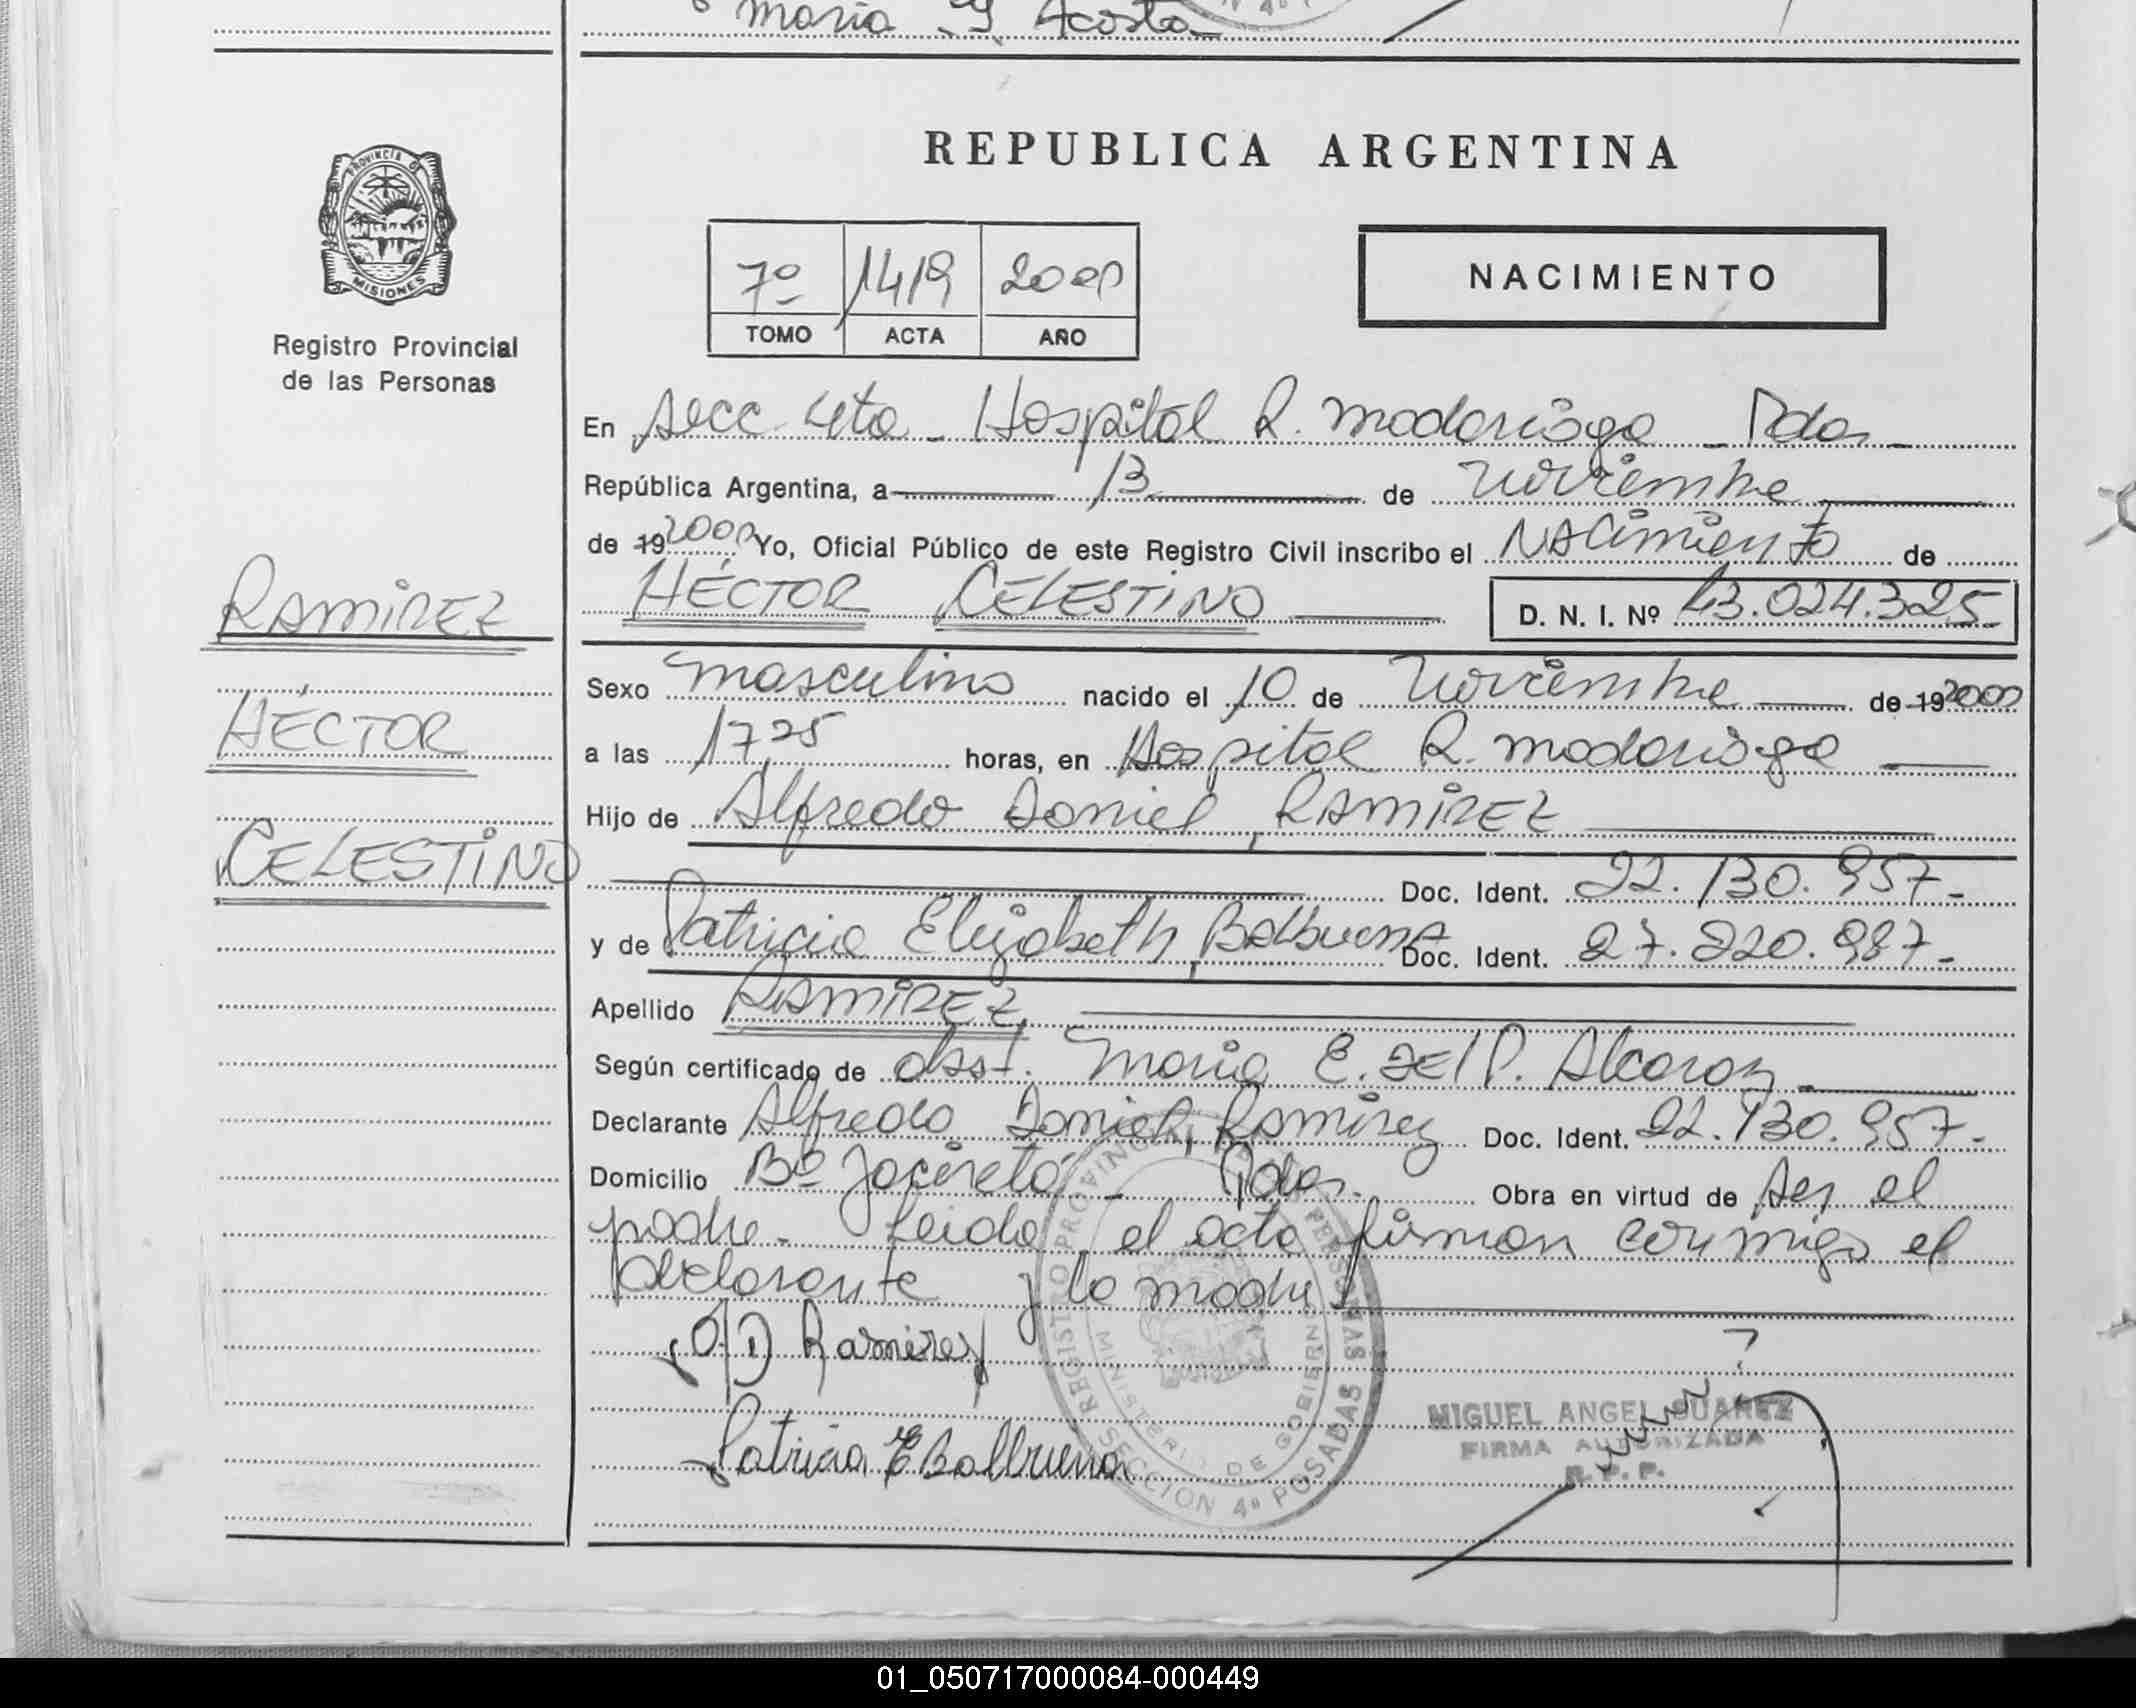 Maria G. Acosta
PROVINCIA DE
MISIONES
Registro Provincial
de las Personas
RAMIREZ
HÉCTOR
CELESTINO
REPUBLICA ARGENTINA
7º 1419 2000
TOMO ACTA AÑO
NACIMIENTO
En Secc 4ta - Hospital R. Madariaga - Pdas -
República Argentina, a 13 de Noviembre
de 19 2000 Yo, Oficial Público de este Registro Civil inscribo el NACimiento de
HÉCTOR CELESTINO D. N. I. Nº 43.024.325-
Sexo masculino nacido el 10 de Noviembre de 19 2000
a las 17 25 horas, en Hospital R. Madariaga
Hijo de Alfredo Daniel, RAMIREZ
Doc. Ident. 22.130.957-
y de Patricia Elizabeth, Balbuena Doc. Ident. 27.220.987-
Apellido RAMIREZ
Según certificado de obst. Maria E. DEL P. Alcaraz
Declarante Alfredo Daniel, Ramirez Doc. Ident. 22.130.957-
Domicilio Bº Yacireta - Pdas. Obra en virtud de ser el
padre - Leida el acta firman conmigo el
declarante y la madre
A D Ramirez
Patricia E Balbuena
REGISTRO PROVINCIAL DE LAS PERSONAS
MINISTERIO DE GOBIERNO
SECCION 4º POSADAS
MIGUEL ANGEL SUAREZ
FIRMA AUTORIZADA
R. P. P.
01_050717000084-000449